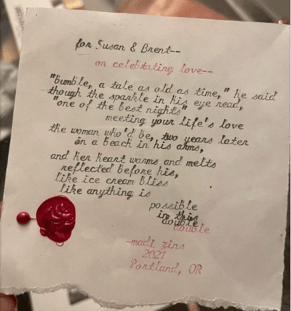 for Susan & Brent--
on celebrating love--
"bumble, a tale as old as time," he said
though the sparkle in his eye read,
"one of the best nights"
meeting your life's love
the woman who'd be, two years later
on a beach in his arms,
and her heart warms and melts
reflected before his,
like ice cream bliss
like anything is
possible
in this
double
double
-madi zins
2021
Portland, OR